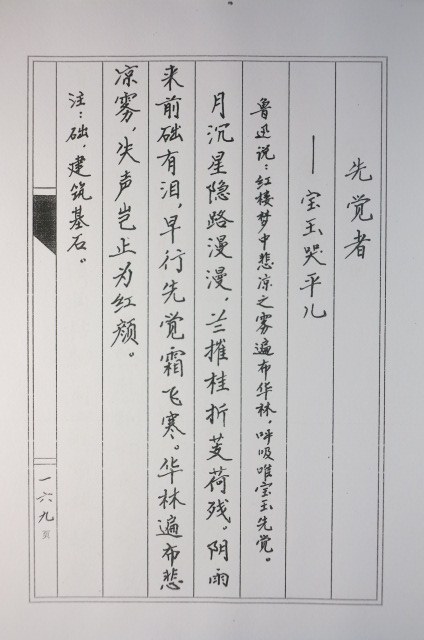 先觉者
——宝玉哭平儿
鲁迅说：红楼梦中悲凉之雾遍布华林，呼吸唯宝玉先觉。
月沉星隐路漫漫，兰摧桂折芰荷残。阴雨
来前础有泪，早行先觉霜飞寒。华林遍布悲
凉雾，失声岂止为红颜。
注：础，建筑基石。
一六九页